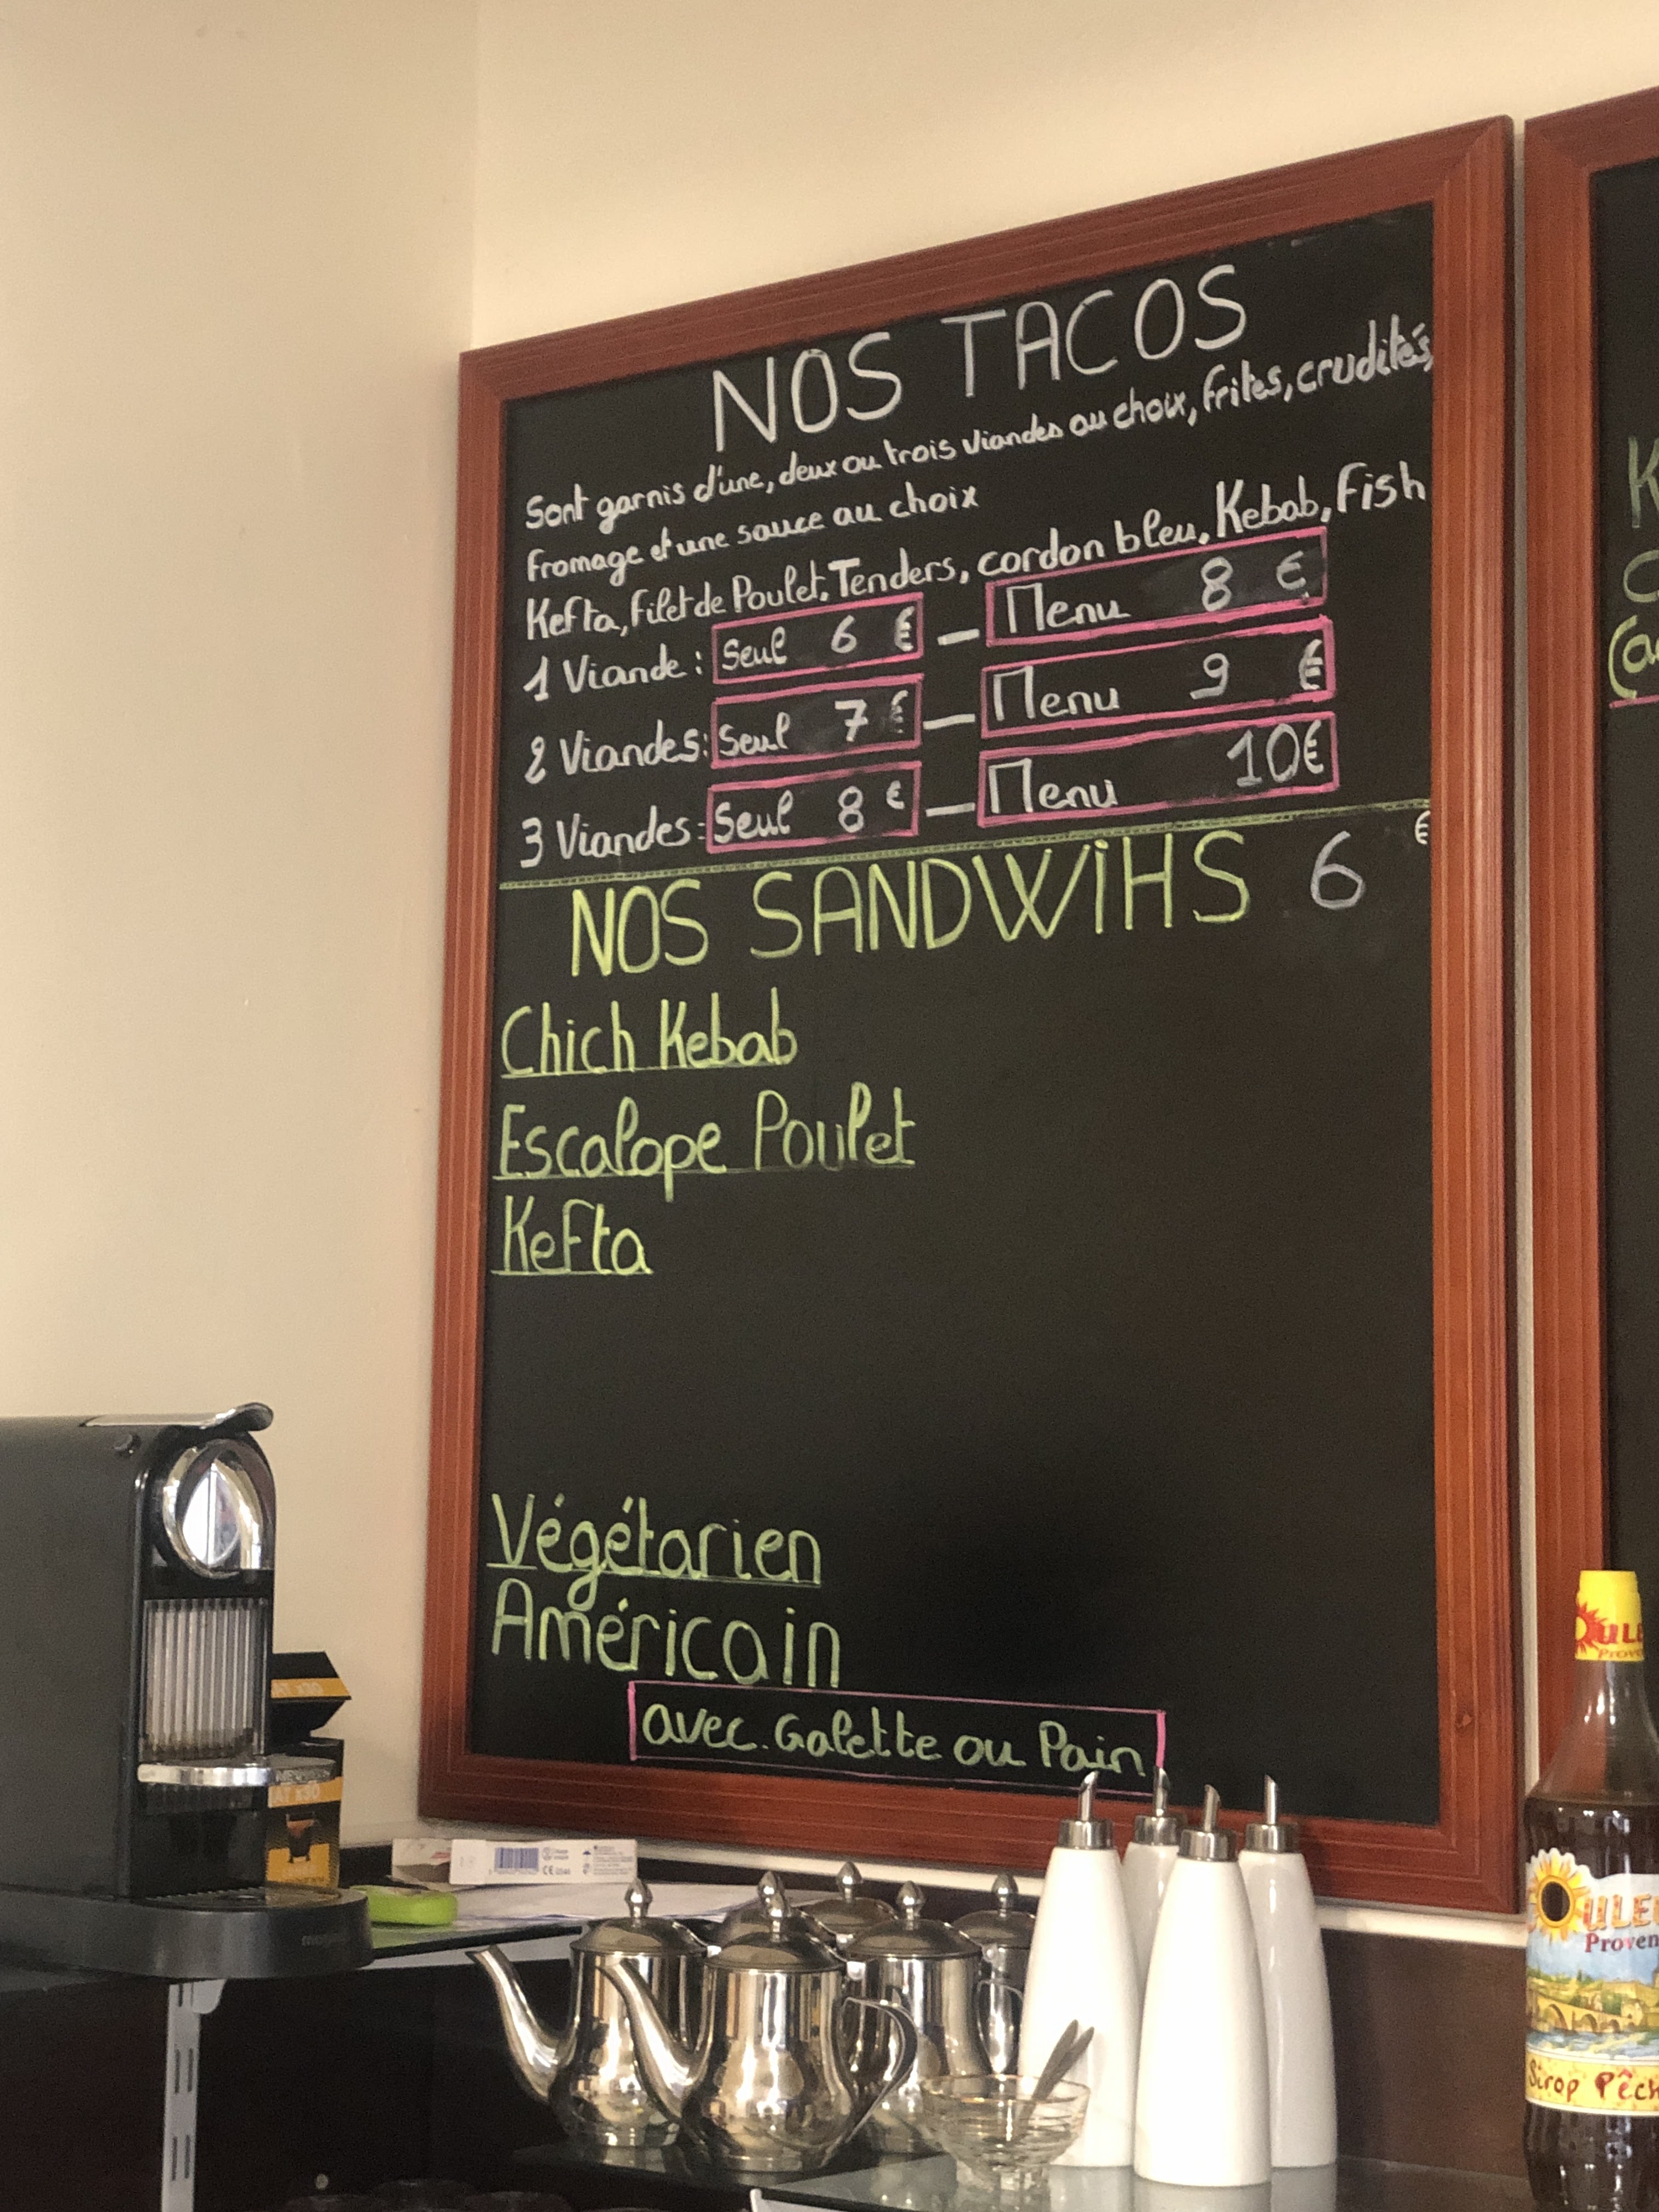 NOS TACOS
Sont garnis d'une, deux ou trois viandes au choix, frites, crudités,
fromage et une sauce au choix
Kefta, Filet de Poulet, Tenders, cordon bleu, Kebab, Fish
1 Viande: Seul 6 € - Menu 8 €
2 Viandes: Seul 7 € - Menu 9 €
3 Viandes: Seul 8 € - Menu 10€
NOS SANDWiHS 6 €
Chich Kebab
Escalope Poulet
Kefta
Végétarien
Américain
avec Galette ou Pain
Proven
Sirop Pêch